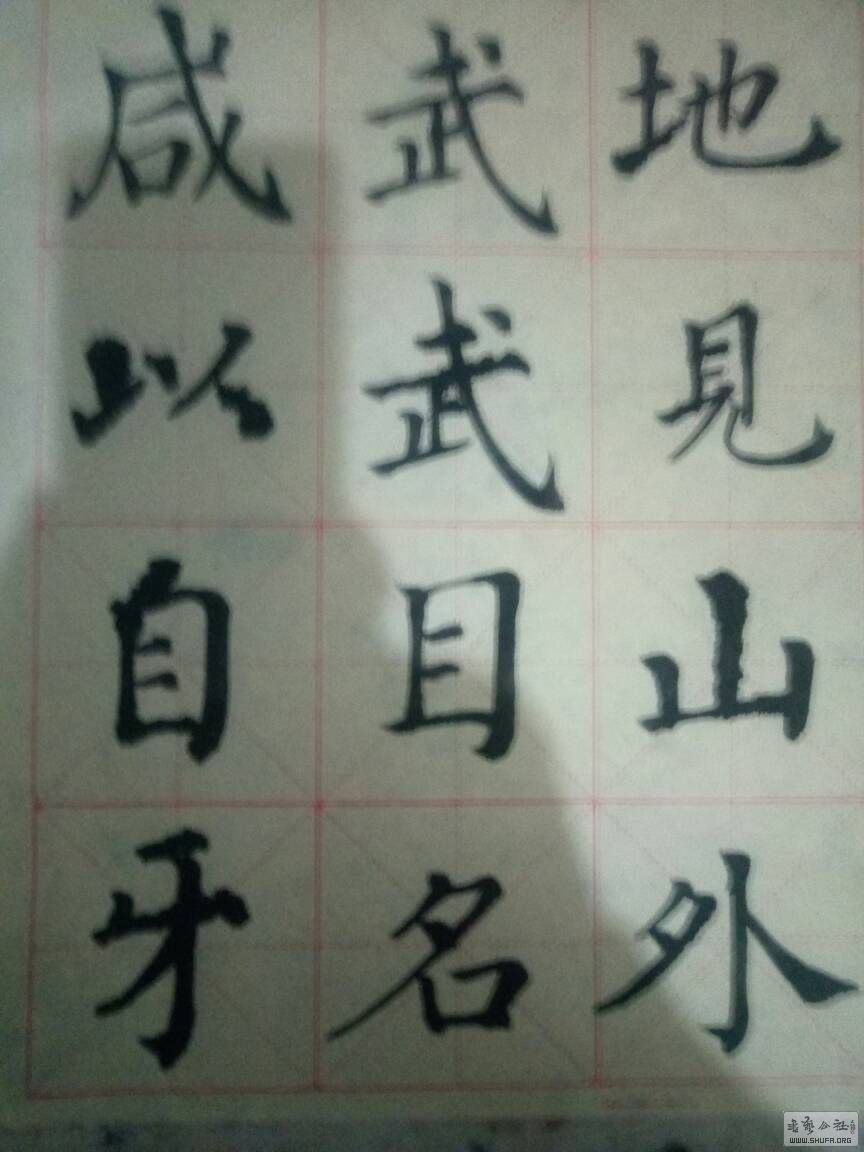 地見山外
武武目名
咸以自牙
書藝公社
WWW.SHUFA.ORG